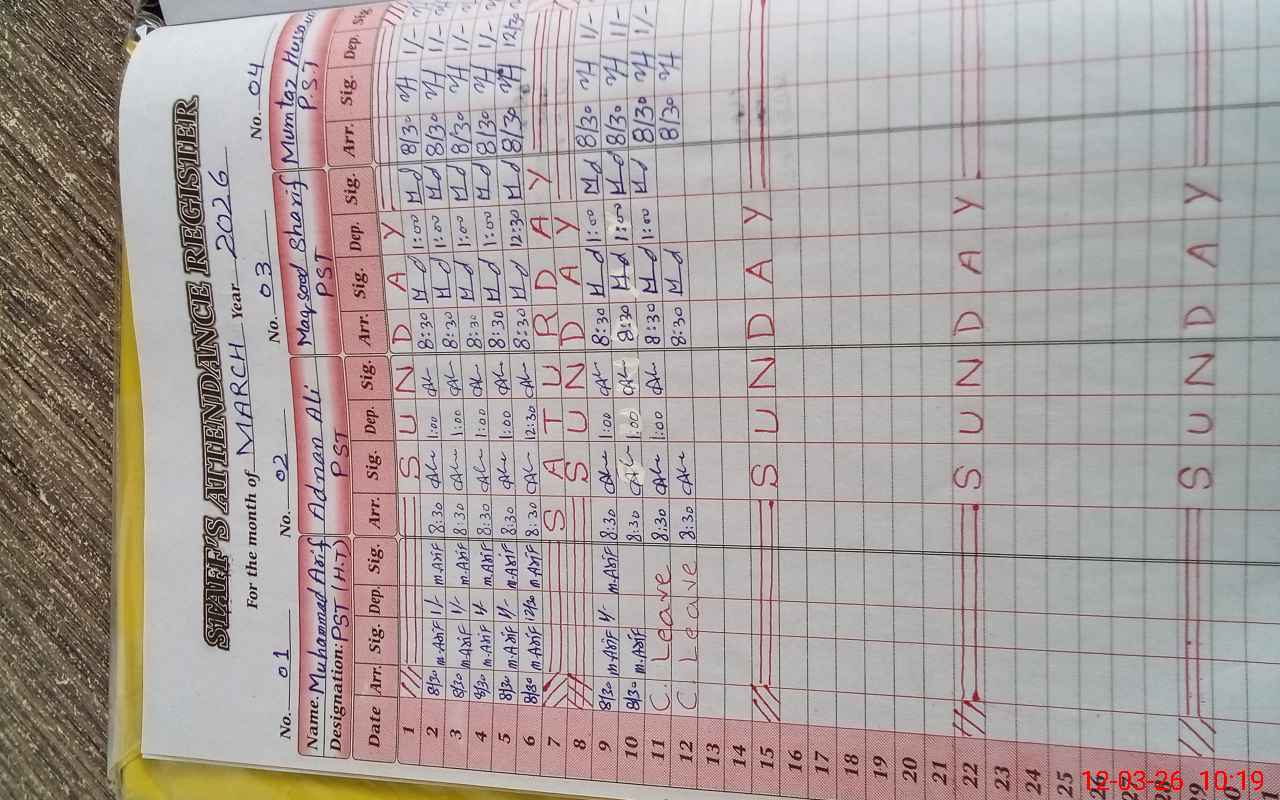 STAFF'S ATTENDANCE REGISTER
For the month of MARCH Year 2026
No. 01 No. 02 No. 03 No. 04
Name. Muhammad Arif Adnan Ali Maqsood Sharif Mumtaz
Designation: PST (H.T) PST PST P.S.T
Date Arr. Sig. Dep. Sig. Arr. Sig. Dep. Sig. Arr. Sig. Dep. Sig. Arr. Sig. Dep. Sig
1 SUNDAY
2 8/30 m.Arif 1/- m.Arif 8:30 1:00 8:30 M_d 1:00 M_d 8/30 1/-
3 8/30 m.Arif 1/- m.Arif 8:30 1:00 8:30 M_d 1:00 M_d 8/30 1/-
4 8/30 m.Arif 1/- m.Arif 8:30 1:00 8:30 M_d 1:00 M_d 8/30 1/-
5 8/30 m.Arif 1/- m.Arif 8:30 1:00 8:30 M_d 1:00 M_d 8/30 1/-
6 8/30 m.Arif 12/30 m.Arif 8:30 12:30 8:30 M_d 12:30 M_d 8/30 12/30
7 SATURDAY
8 SUNDAY
9 8/30 m.Arif 1/- m.Arif 8:30 1:00 8:30 M_d 1:00 M_d 8/30 1/-
10 8/30 m.Arif 8:30 1:00 8:30 M_d 1:00 M_d 8/30 1/-
11 C. Leave 8:30 1:00 8:30 M_d 1:00 M_d 8/30 1/-
12 C. Leave 8:30 8:30 M_d 8/30
13
14
15 SUNDAY
16
17
18
19
20
21
22 SUNDAY
23
24
25
26
27
28
29 SUNDAY
30
12-03-26 10:19